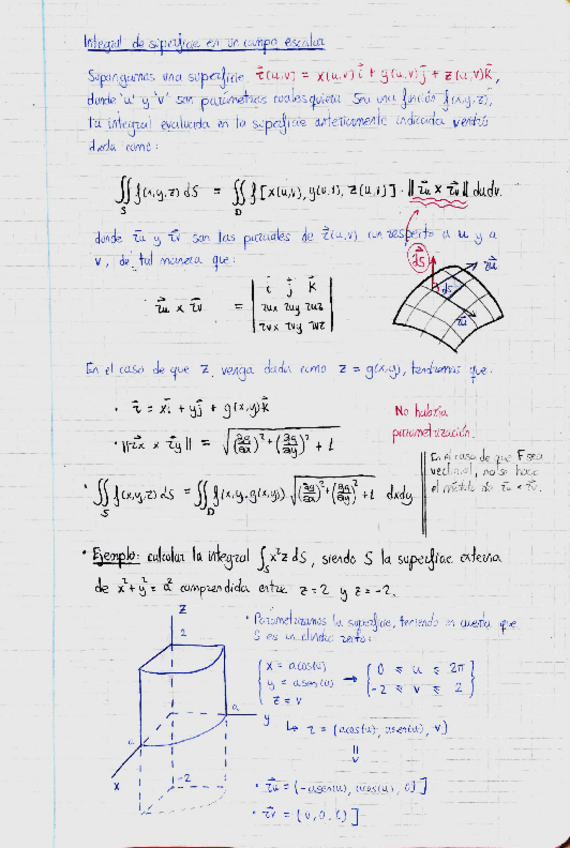 Integral de superficie en un campo escalar
Supongamos una superficie r⃗(u,v) = x(u,v) i⃗ + y(u,v) j⃗ + z(u,v) k⃗,
donde 'u' y 'v' son parámetros cualesquiera. Sea una función f(x,y,z),
la integral evaluada en la superficie anteriormente indicada vendrá
dada como:
∬_S f(x,y,z) dS = ∬_D f[x(u,v), y(u,v), z(u,v)] · ‖r⃗u × r⃗v‖ du dv.
donde r⃗u y r⃗v son las parciales de r⃗(u,v) con respecto a u y a
v, de tal manera que:
dS⃗
r⃗u
dS
r⃗v
r⃗u × r⃗v = | i⃗ j⃗ k⃗ |
| rux ruy ruz |
| rvx rvy rvz |
En el caso de que z, venga dada como z = g(x,y), tendremos que:
· r⃗ = x i⃗ + y j⃗ + g(x,y) k⃗
No habría
parametrización.
· ‖r⃗x × r⃗y‖ = √((∂g/∂x)² + (∂g/∂y)² + 1)
En el caso de que F sea
vectorial, no se hace
el módulo de r⃗u × r⃗v.
· ∬_S f(x,y,z) dS = ∬_D f(x,y,g(x,y)) √((∂g/∂x)² + (∂g/∂y)² + 1) dxdy
· Ejemplo: calcular la integral ∫_S x²z dS, siendo S la superficie externa
de x² + y² = a² comprendida entre z = 2 y z = -2.
z
2
a
y
a
x
-2
· Parametrizamos la superficie, teniendo en cuenta que
S es un cilindro recto:
{ x = a cos(u)
y = a sen(u)
z = v
→ { 0 ≤ u ≤ 2π
-2 ≤ v ≤ 2 }
↳ r = (a cos(u), a sen(u), v)
⇓
· r⃗u = (-a sen(u), a cos(u), 0)]
· r⃗v = (0, 0, 1)]